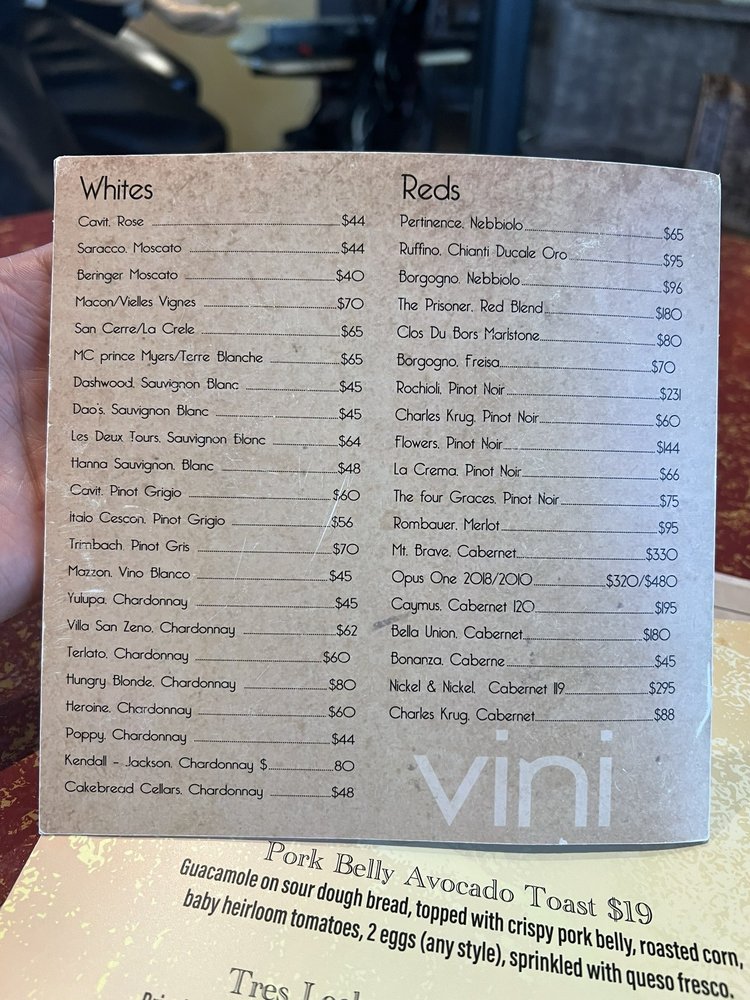 Whites
Cavit, Rose $44
Saracco, Moscato $44
Beringer Moscato $40
Macon/Vielles Vignes $70
San Cerre/La Crele $65
MC prince Myers/Terre Blanche $65
Dashwood, Sauvignon Blanc $45
Dao's, Sauvignon Blanc $45
Les Deux Tours, Sauvignon Blanc $64
Hanna Sauvignon, Blanc $48
Cavit, Pinot Grigio $60
Italo Cescon, Pinot Grigio $56
Trimbach, Pinot Gris $70
Mazzon, Vino Blanco $45
Yulupa, Chardonnay $45
Villa San Zeno, Chardonnay $62
Terlato, Chardonnay $60
Hungry Blonde, Chardonnay $80
Heroine, Chardonnay $60
Poppy, Chardonnay $44
Kendall - Jackson, Chardonnay $ 80
Cakebread Cellars, Chardonnay $48
Reds
Pertinence, Nebbiolo $65
Ruffino, Chianti Ducale Oro $95
Borgogno, Nebbiolo $96
The Prisoner, Red Blend $180
Clos Du Bors Marlstone $80
Borgogno, Freisa $70
Rochioli, Pinot Noir $231
Charles Krug, Pinot Noir $60
Flowers, Pinot Noir $144
La Crema, Pinot Noir $66
The four Graces, Pinot Noir $75
Rombauer, Merlot $95
Mt. Brave, Cabernet $330
Opus One 2018/2010 $320/$480
Caymus, Cabernet 120 $195
Bella Union, Cabernet $180
Bonanza, Caberne $45
Nickel & Nickel, Cabernet 119 $295
Charles Krug, Cabernet $88
vini
Pork Belly Avocado Toast $19
Guacamole on sour dough bread, topped with crispy pork belly, roasted corn,
baby heirloom tomatoes, 2 eggs (any style), sprinkled with queso fresco.
Tres